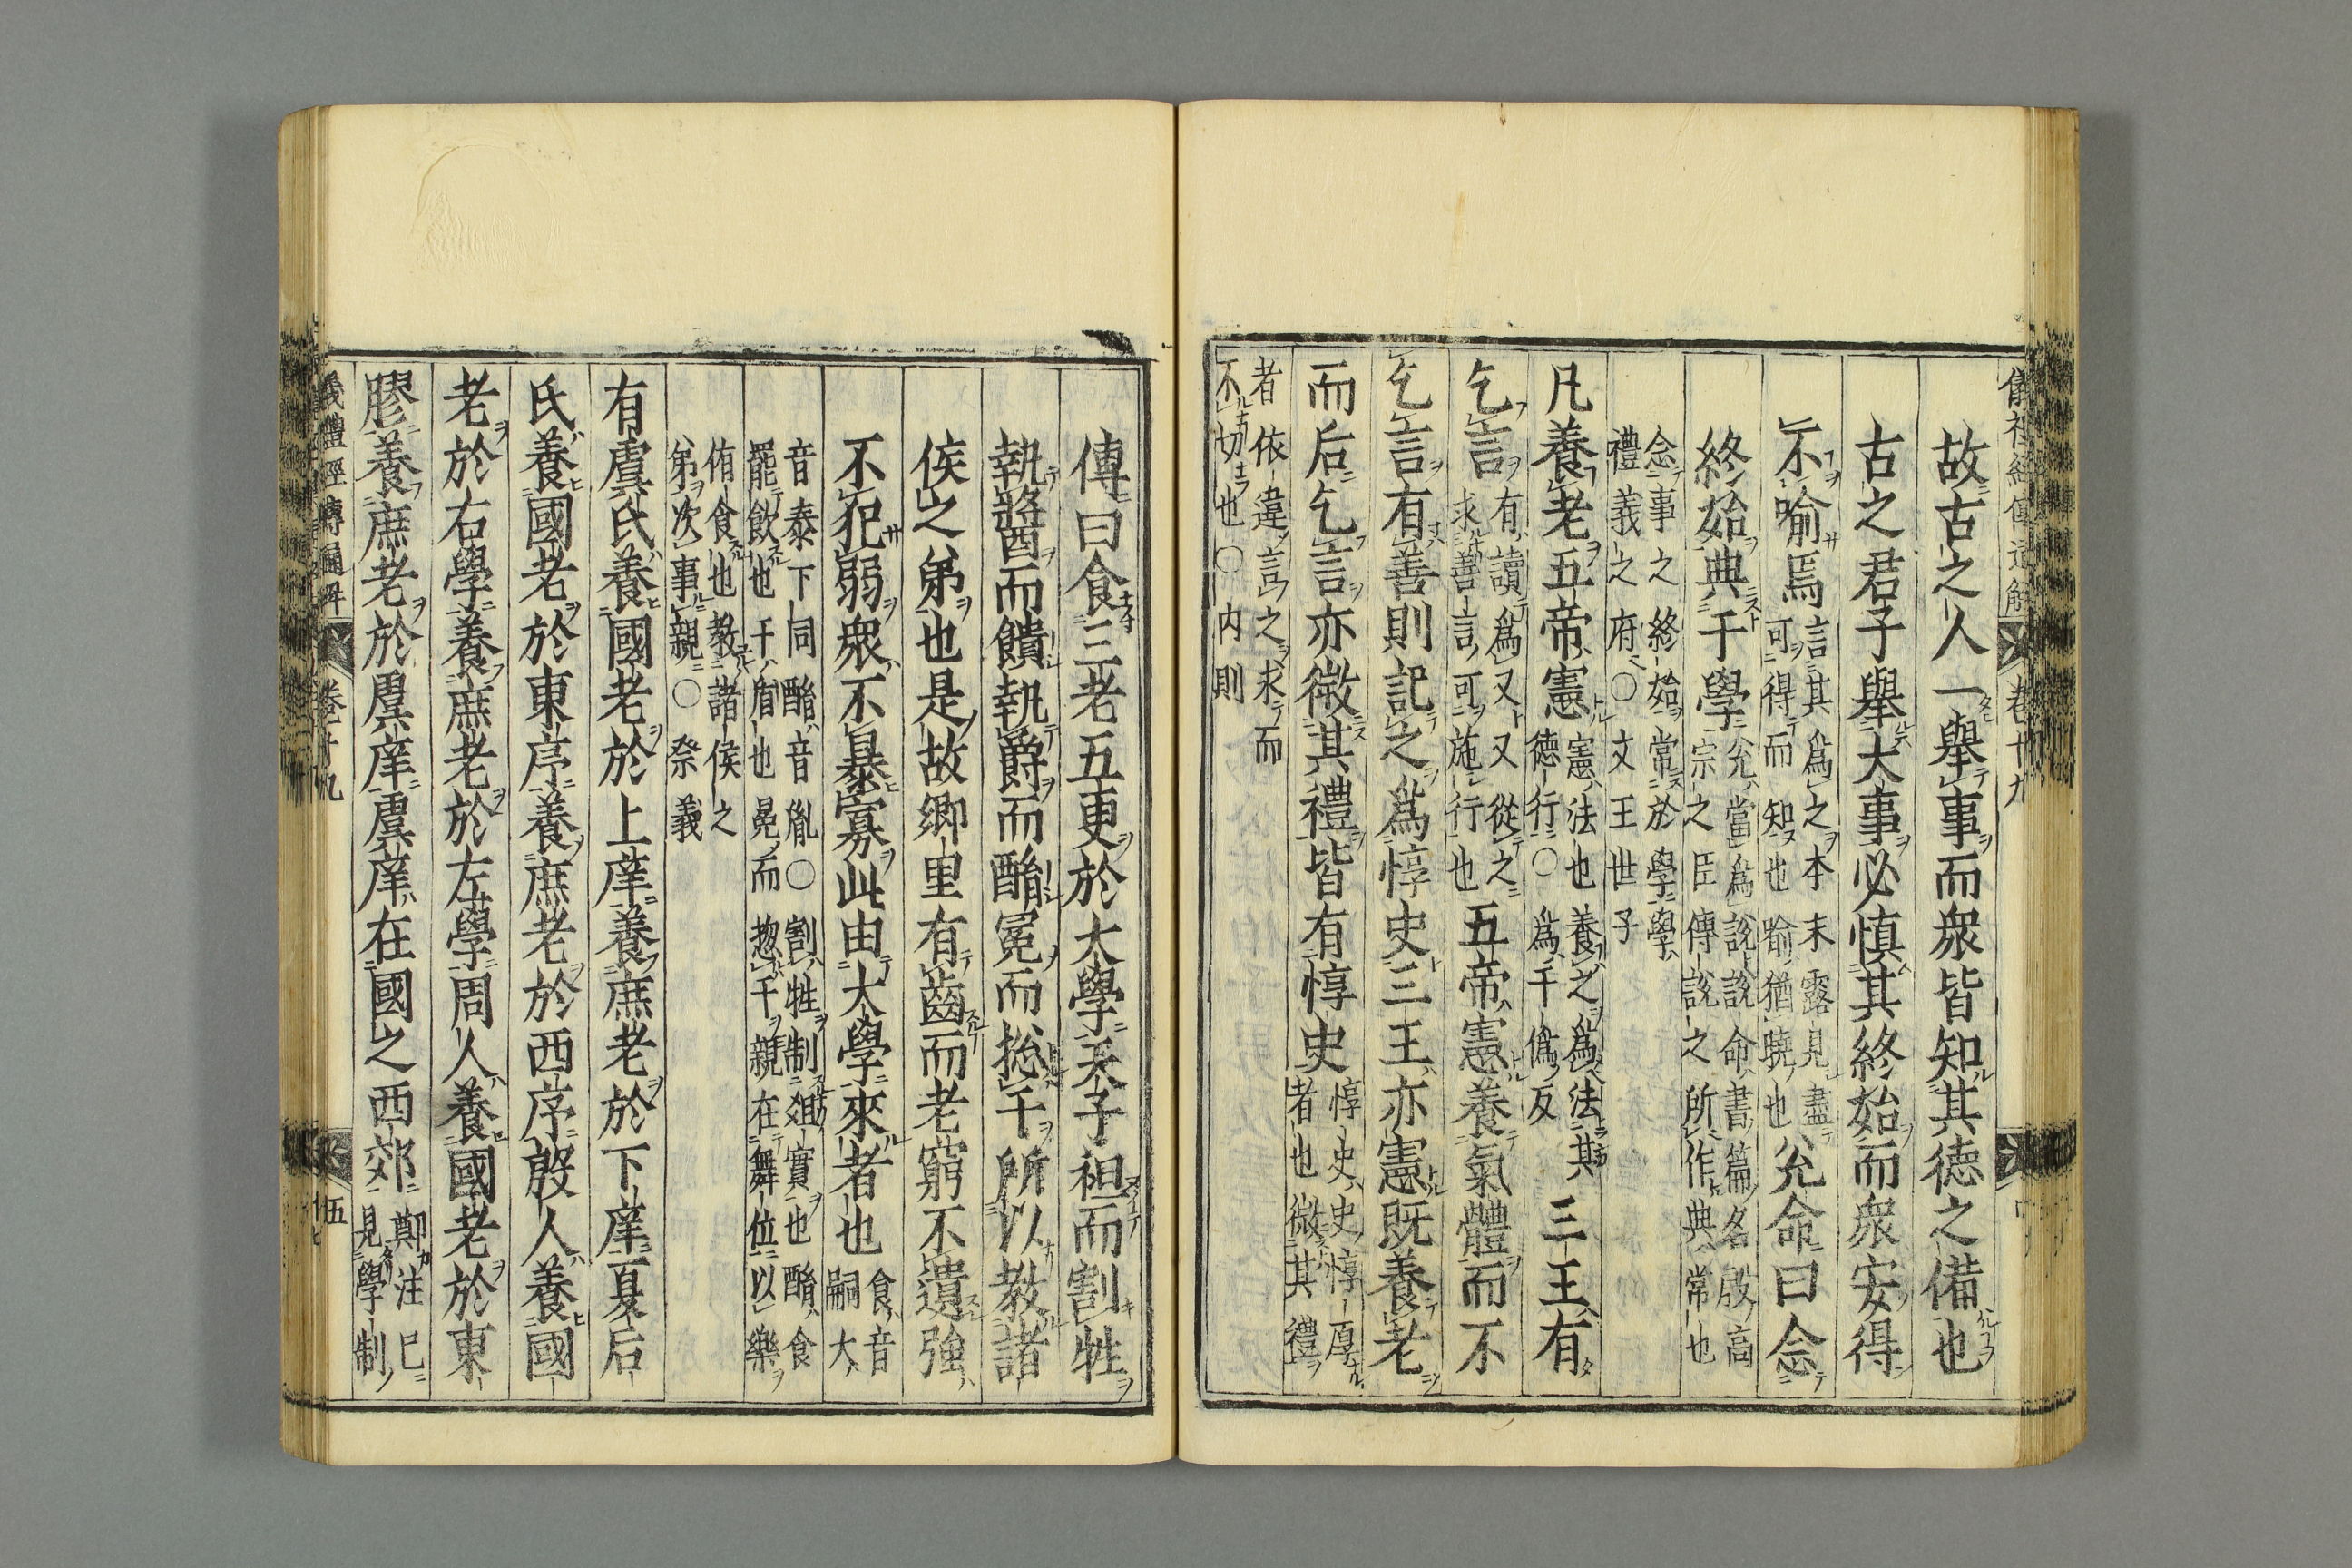 儀禮經傳通解 卷十九
故古之人一舉事而衆皆知其徳之備也
古之君子舉大事必慎其終始而衆安得
不喻焉言其為之本末露見盡可得而知也喻猶曉也兊命曰念
終始典于學兊當為說說命書篇名殷高宗之臣傅説之所作典常也
念事之終始常於學學禮義之府〇文王世子
凡養老五帝憲憲法也養之為法其徳行〇為于偽反三王有
乞言有讀為又又從之求善言可施行也五帝憲養氣體而不
乞言有善則記之為惇史三王亦憲既養老
而后乞言亦微其禮皆有惇史惇史史惇厚者也微其禮
者依違言之求而不切也〇内則
傳曰食三老五更於大學天子袒而割牲
執醬而饋執爵而酳冕而捴干所以教諸
侯之弟也是故卿里有齒而老窮不遺強
不犯弱衆不暴寡此由大學來者也食音嗣大
音泰下同酳音胤〇割牲制俎實也酳食罷飲也干盾也冕而捴干親在舞位以樂
侑食也教諸侯之弟次事親〇祭義
有虞氏養國老於上庠養庶老於下庠夏后
氏養國老於東序養庶老於西序殷人養國
老於右學養庶老於左學周人養國老於東
膠養庶老於虞庠虞庠在國之西郊鄭注已見學制
儀禮經傳通解 卷十九 五